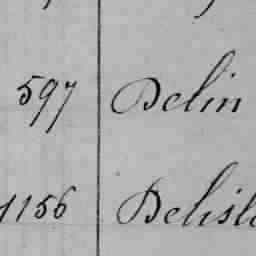 597 Delin
1156 Delisle